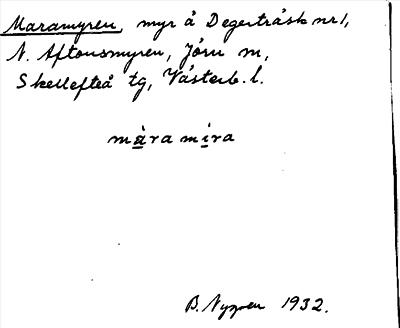 Maramyren, myr å Degerträsk nr 1,
N. Aftonsmyren, Jörn m,
Skellefteå tg, Västerb. l.
màramira
B. Nygren 1932.